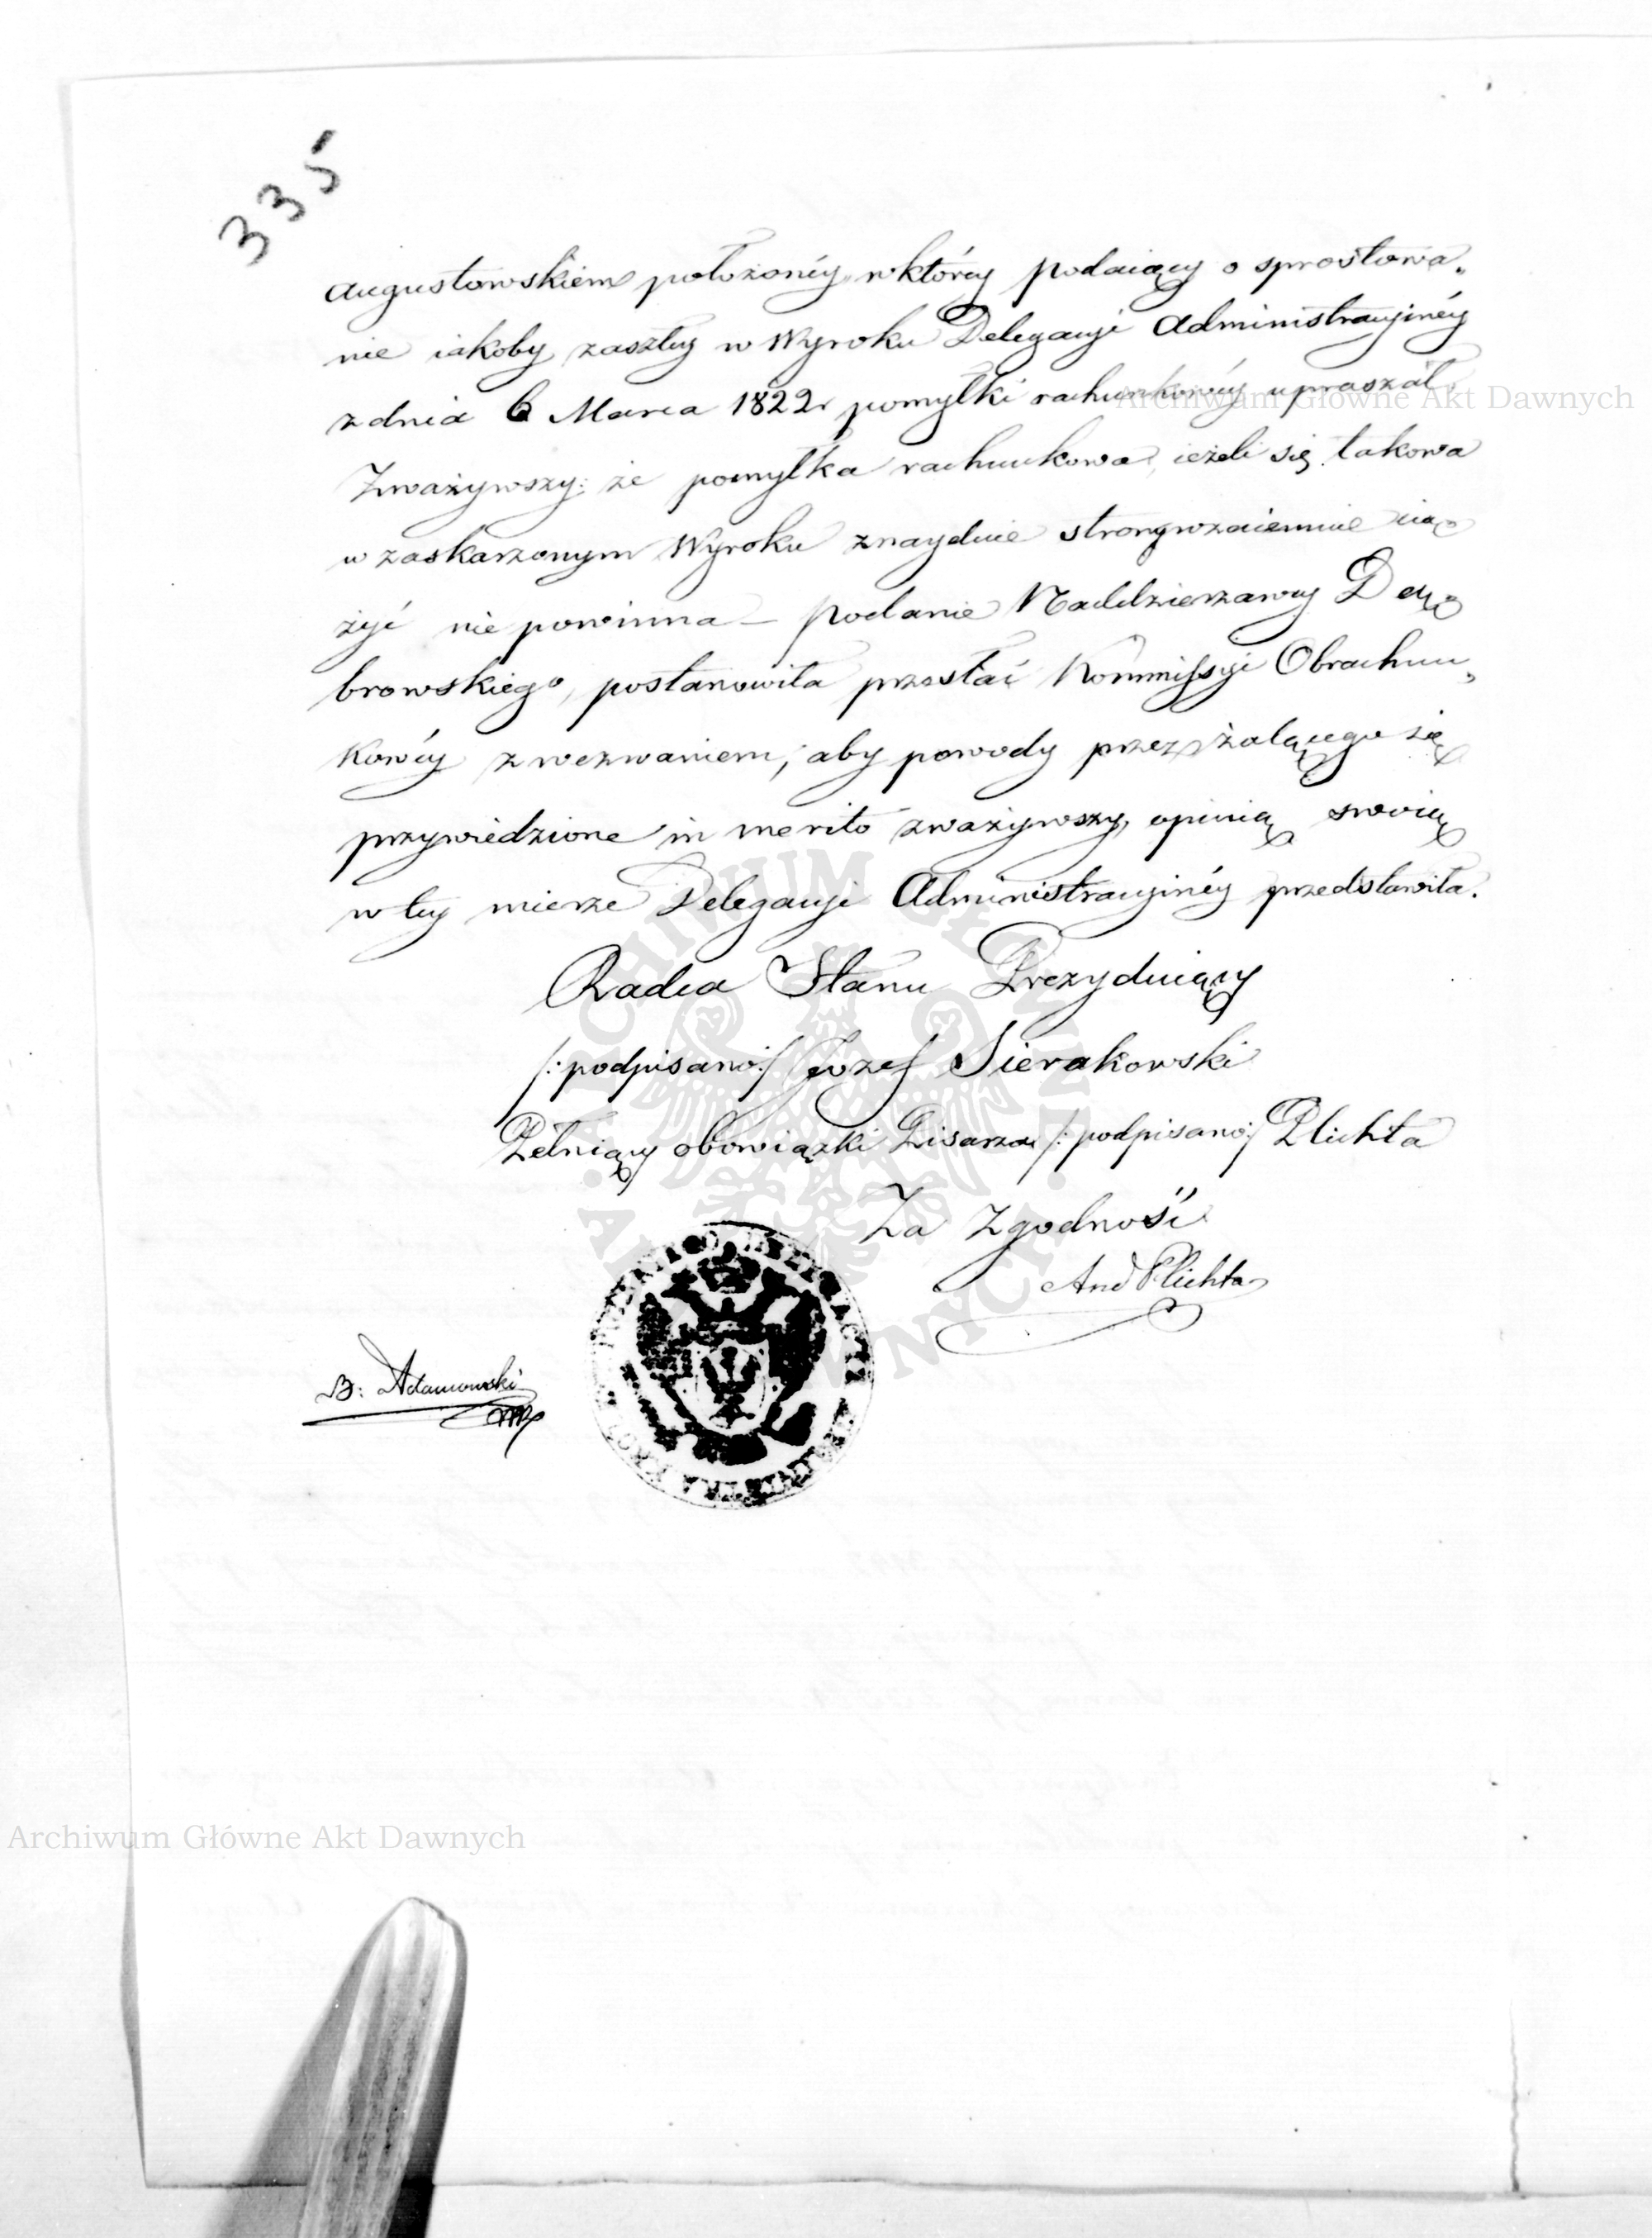 335
Augustowskiem położonéy, w któréy podaiący o sprostowa„
nie iakoby zaszłéy w Wyroku Delegacyi Administracyinéy
z dnia 6 Marca 1822r pomyłki rachunkowéy upraszał.
Zważywszy: że pomyłka rachunkowa, ieżeli się takowa
w zaskarzonym Wyroku znayduie strony wzaiemnie cią„
żyć nie powinna — Podanie Naddzierzawcy Dą„
browskiego, postanowiła przesłać Kommissyi Obrachun„
kowéy z wezwaniem, aby powody przez żalącego się
przywiedzione in merito zważywszy, opinią swoią
w téy mierze Delegacyi Administracyinéy przedstawiła.
Radca Stanu Prezyduiący
/: podpisano :/ Jozef Sierakowski
Pełniący obowiązki Pisarza /: podpisano :/ Plichta
Za Zgodność
And Plichta
B: Adamowski
Archiwum Główne Akt Dawnych
Archiwum Główne Akt Dawnych